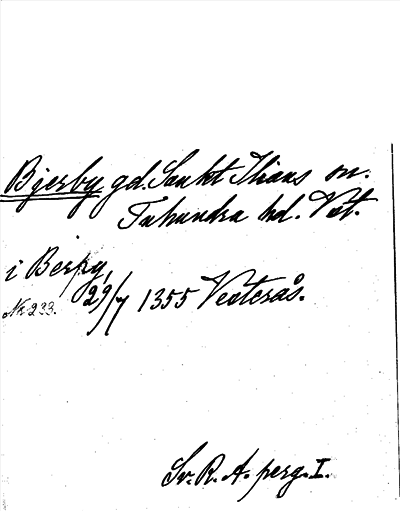 Bjerby gd. Sankt Ilians sn.
Tuhundra hd. Vst.
i Berby
Nr. 233.
29/7 1355 Vesterås.
Sv. R. A. perg. I.